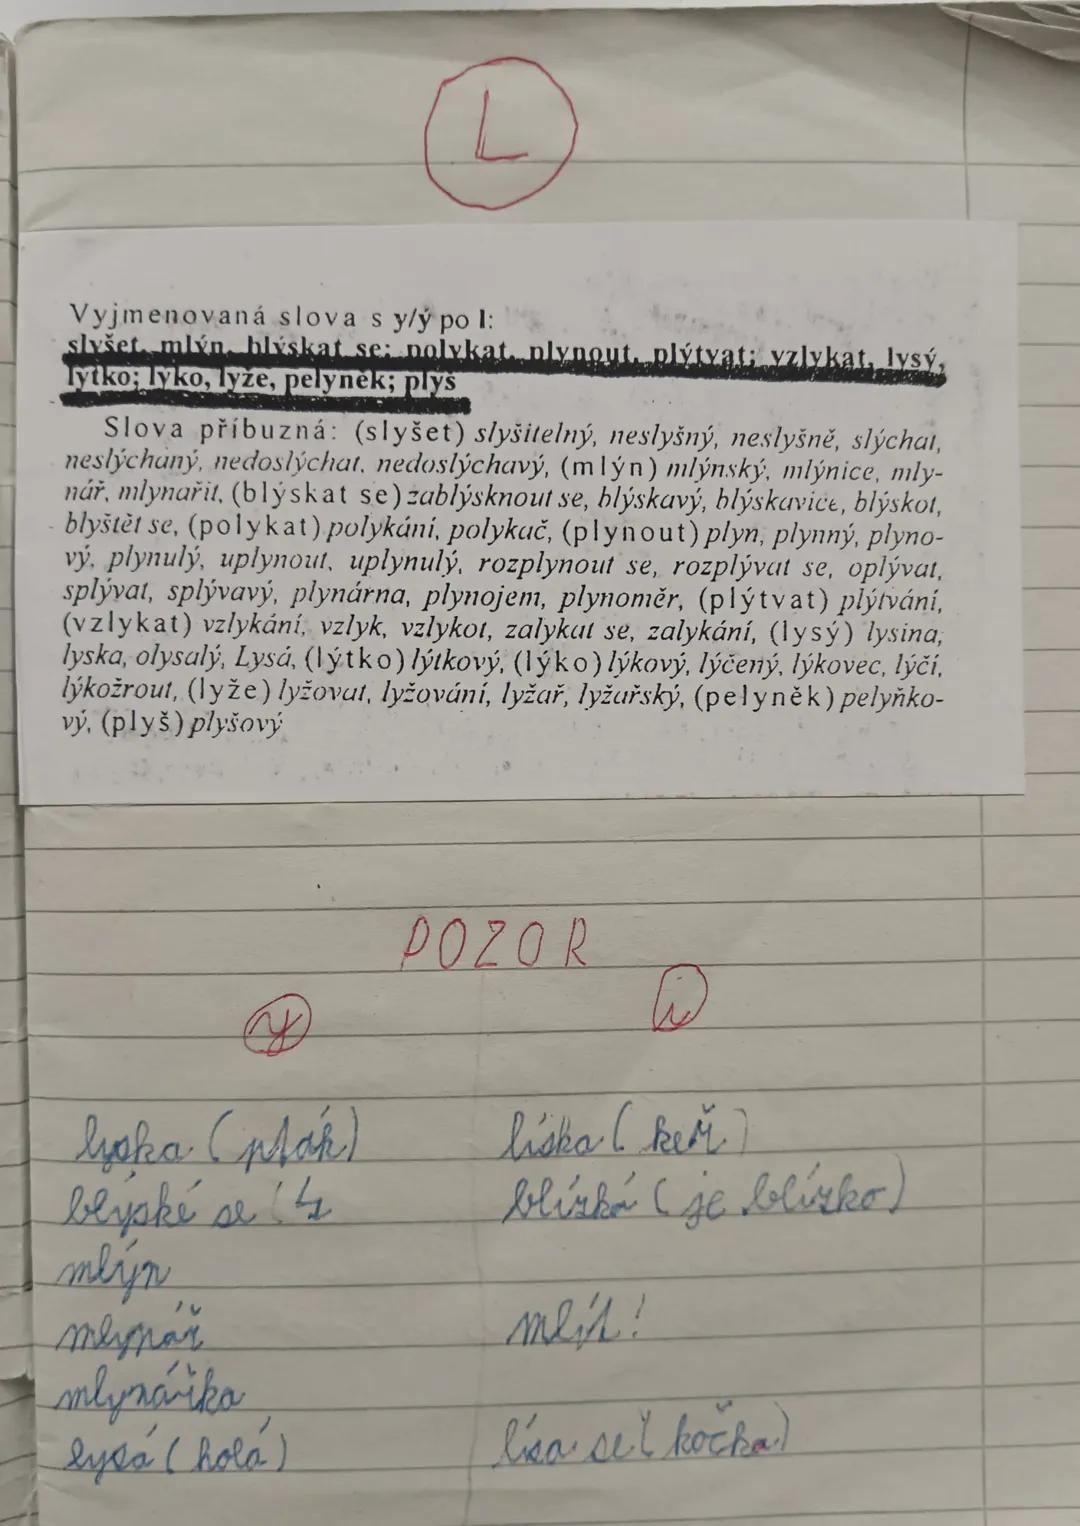 L
Vyjmenovaná slova s y/ý po l:
slyšet, mlýn, blýskat se; polykat, plynout, plýtvat; vzlykat, lysý,
lýtko; lýko, lyže, pelyněk; plyš
Slova příbuzná: (slyšet) slyšitelný, neslyšný, neslyšně, slýchat,
neslýchaný, nedoslýchat, nedoslýchavý, (mlýn) mlýnský, mlýnice, mly-
nář, mlynařit, (blýskat se) zablýsknout se, blýskavý, blýskavice, blýskot,
blyštět se, (polykat) polykání, polykač, (plynout) plyn, plynný, plyno-
vý, plynulý, uplynout, uplynulý, rozplynout se, rozplývat se, oplývat,
splývat, splývavý, plynárna, plynojem, plynoměr, (plýtvat) plýtvání,
(vzlykat) vzlykání, vzlyk, vzlykot, zalykat se, zalykání, (lysý) lysina,
lyska, olysalý, Lysá, (lýtko) lýtkový, (lýko) lýkový, lýčený, lýkovec, lýčí,
lýkožrout, (lyže) lyžovat, lyžování, lyžař, lyžařský, (pelyněk) pelyňko-
vý, (plyš) plyšový
POZOR
y i
lyska (pták) líska (keř)
blýské se ( blízká (je blízko)
mlýn
mlynář mlít!
mlynářka
lysá (holá) lísa se (kočka)